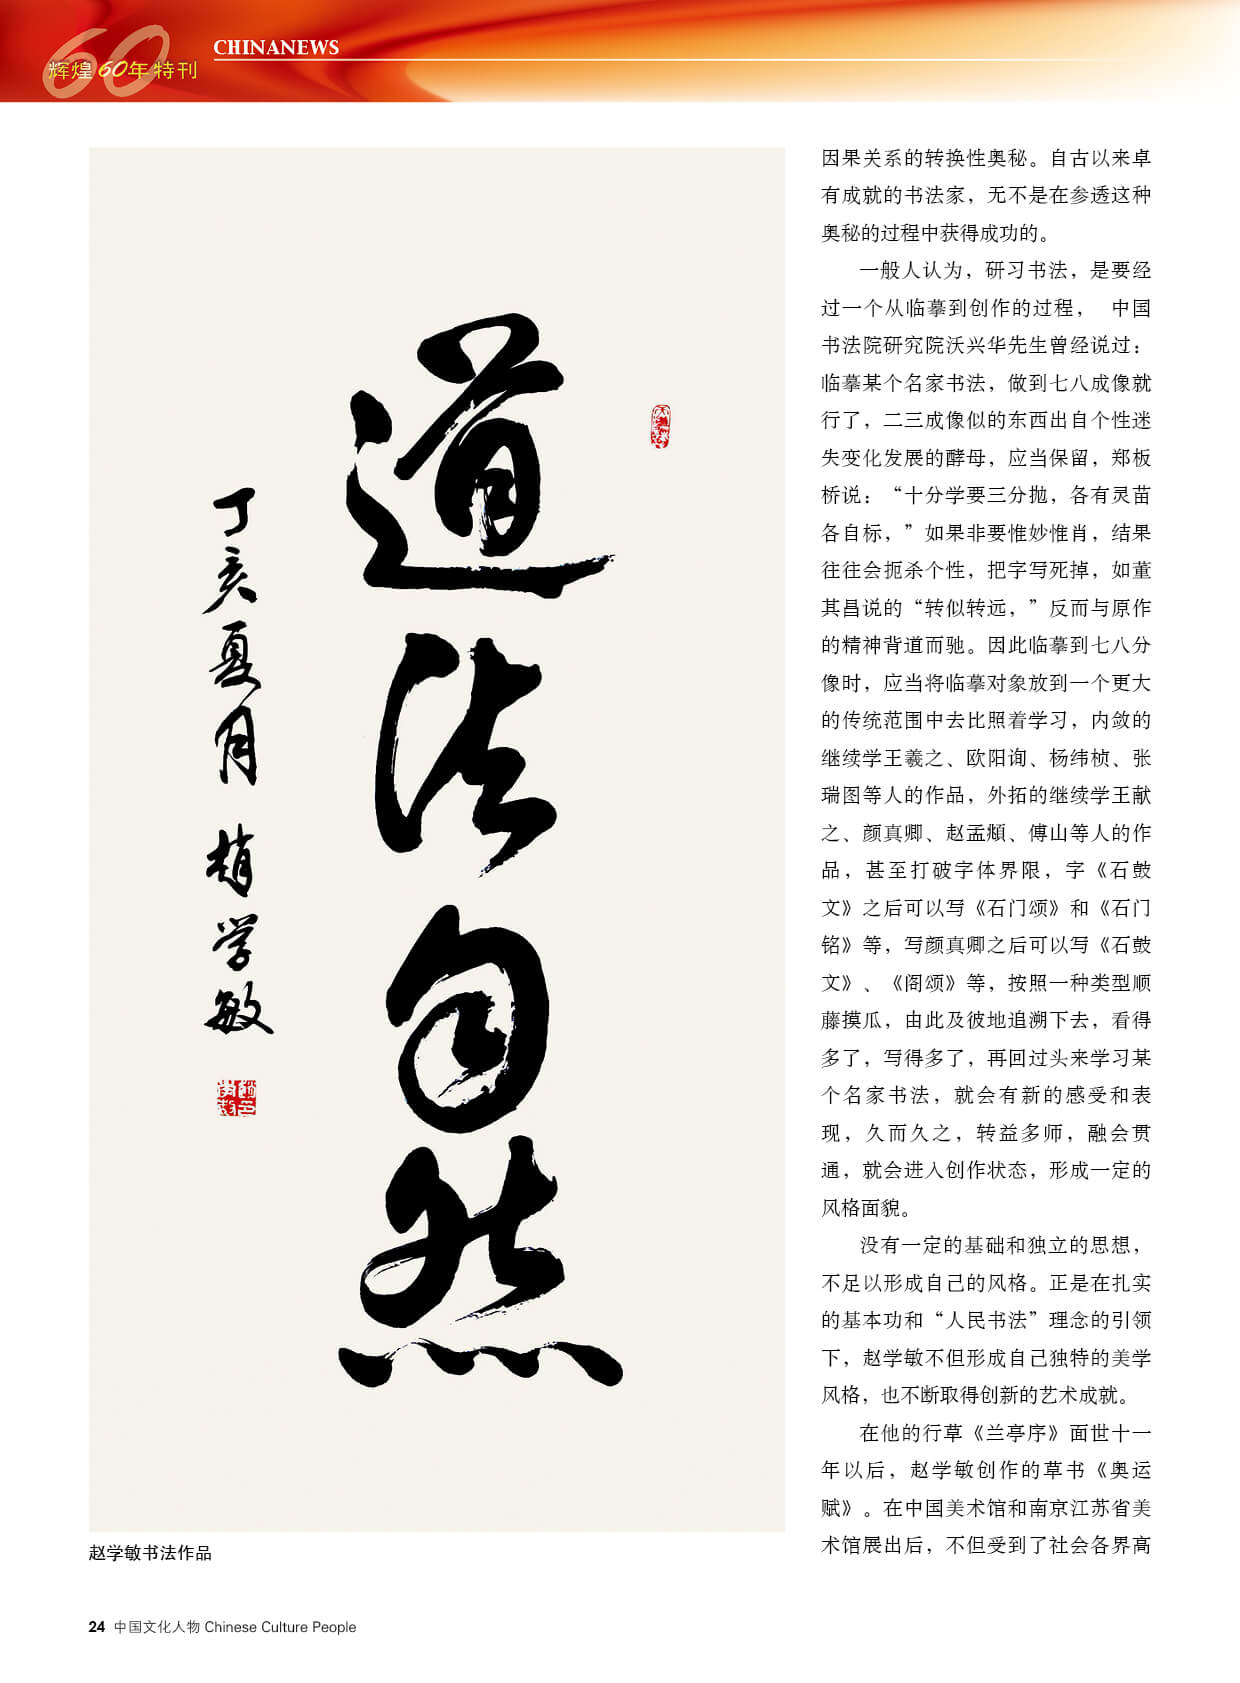 CHINANEWS
辉煌60年特刊
道法自然
丁亥夏月 赵学敏
赵学敏书法作品
因果关系的转换性奥秘。自古以来卓
有成就的书法家，无不是在参透这种
奥秘的过程中获得成功的。
一般人认为，研习书法，是要经
过一个从临摹到创作的过程， 中国
书法院研究院沃兴华先生曾经说过：
临摹某个名家书法，做到七八成像就
行了，二三成像似的东西出自个性迷
失变化发展的酵母，应当保留，郑板
桥说：“十分学要三分抛，各有灵苗
各自标，”如果非要惟妙惟肖，结果
往往会扼杀个性，把字写死掉，如董
其昌说的“转似转远，”反而与原作
的精神背道而驰。因此临摹到七八分
像时，应当将临摹对象放到一个更大
的传统范围中去比照着学习，内敛的
继续学王羲之、欧阳询、杨纬桢、张
瑞图等人的作品，外拓的继续学王献
之、颜真卿、赵孟頫、傅山等人的作
品，甚至打破字体界限，字《石鼓
文》之后可以写《石门颂》和《石门
铭》等，写颜真卿之后可以写《石鼓
文》、《阁颂》等，按照一种类型顺
藤摸瓜，由此及彼地追溯下去，看得
多了，写得多了，再回过头来学习某
个名家书法，就会有新的感受和表
现，久而久之，转益多师，融会贯
通，就会进入创作状态，形成一定的
风格面貌。
没有一定的基础和独立的思想，
不足以形成自己的风格。正是在扎实
的基本功和“人民书法”理念的引领
下，赵学敏不但形成自己独特的美学
风格，也不断取得创新的艺术成就。
在他的行草《兰亭序》面世十一
年以后，赵学敏创作的草书《奥运
赋》。在中国美术馆和南京江苏省美
术馆展出后，不但受到了社会各界高
24 中国文化人物 Chinese Culture People